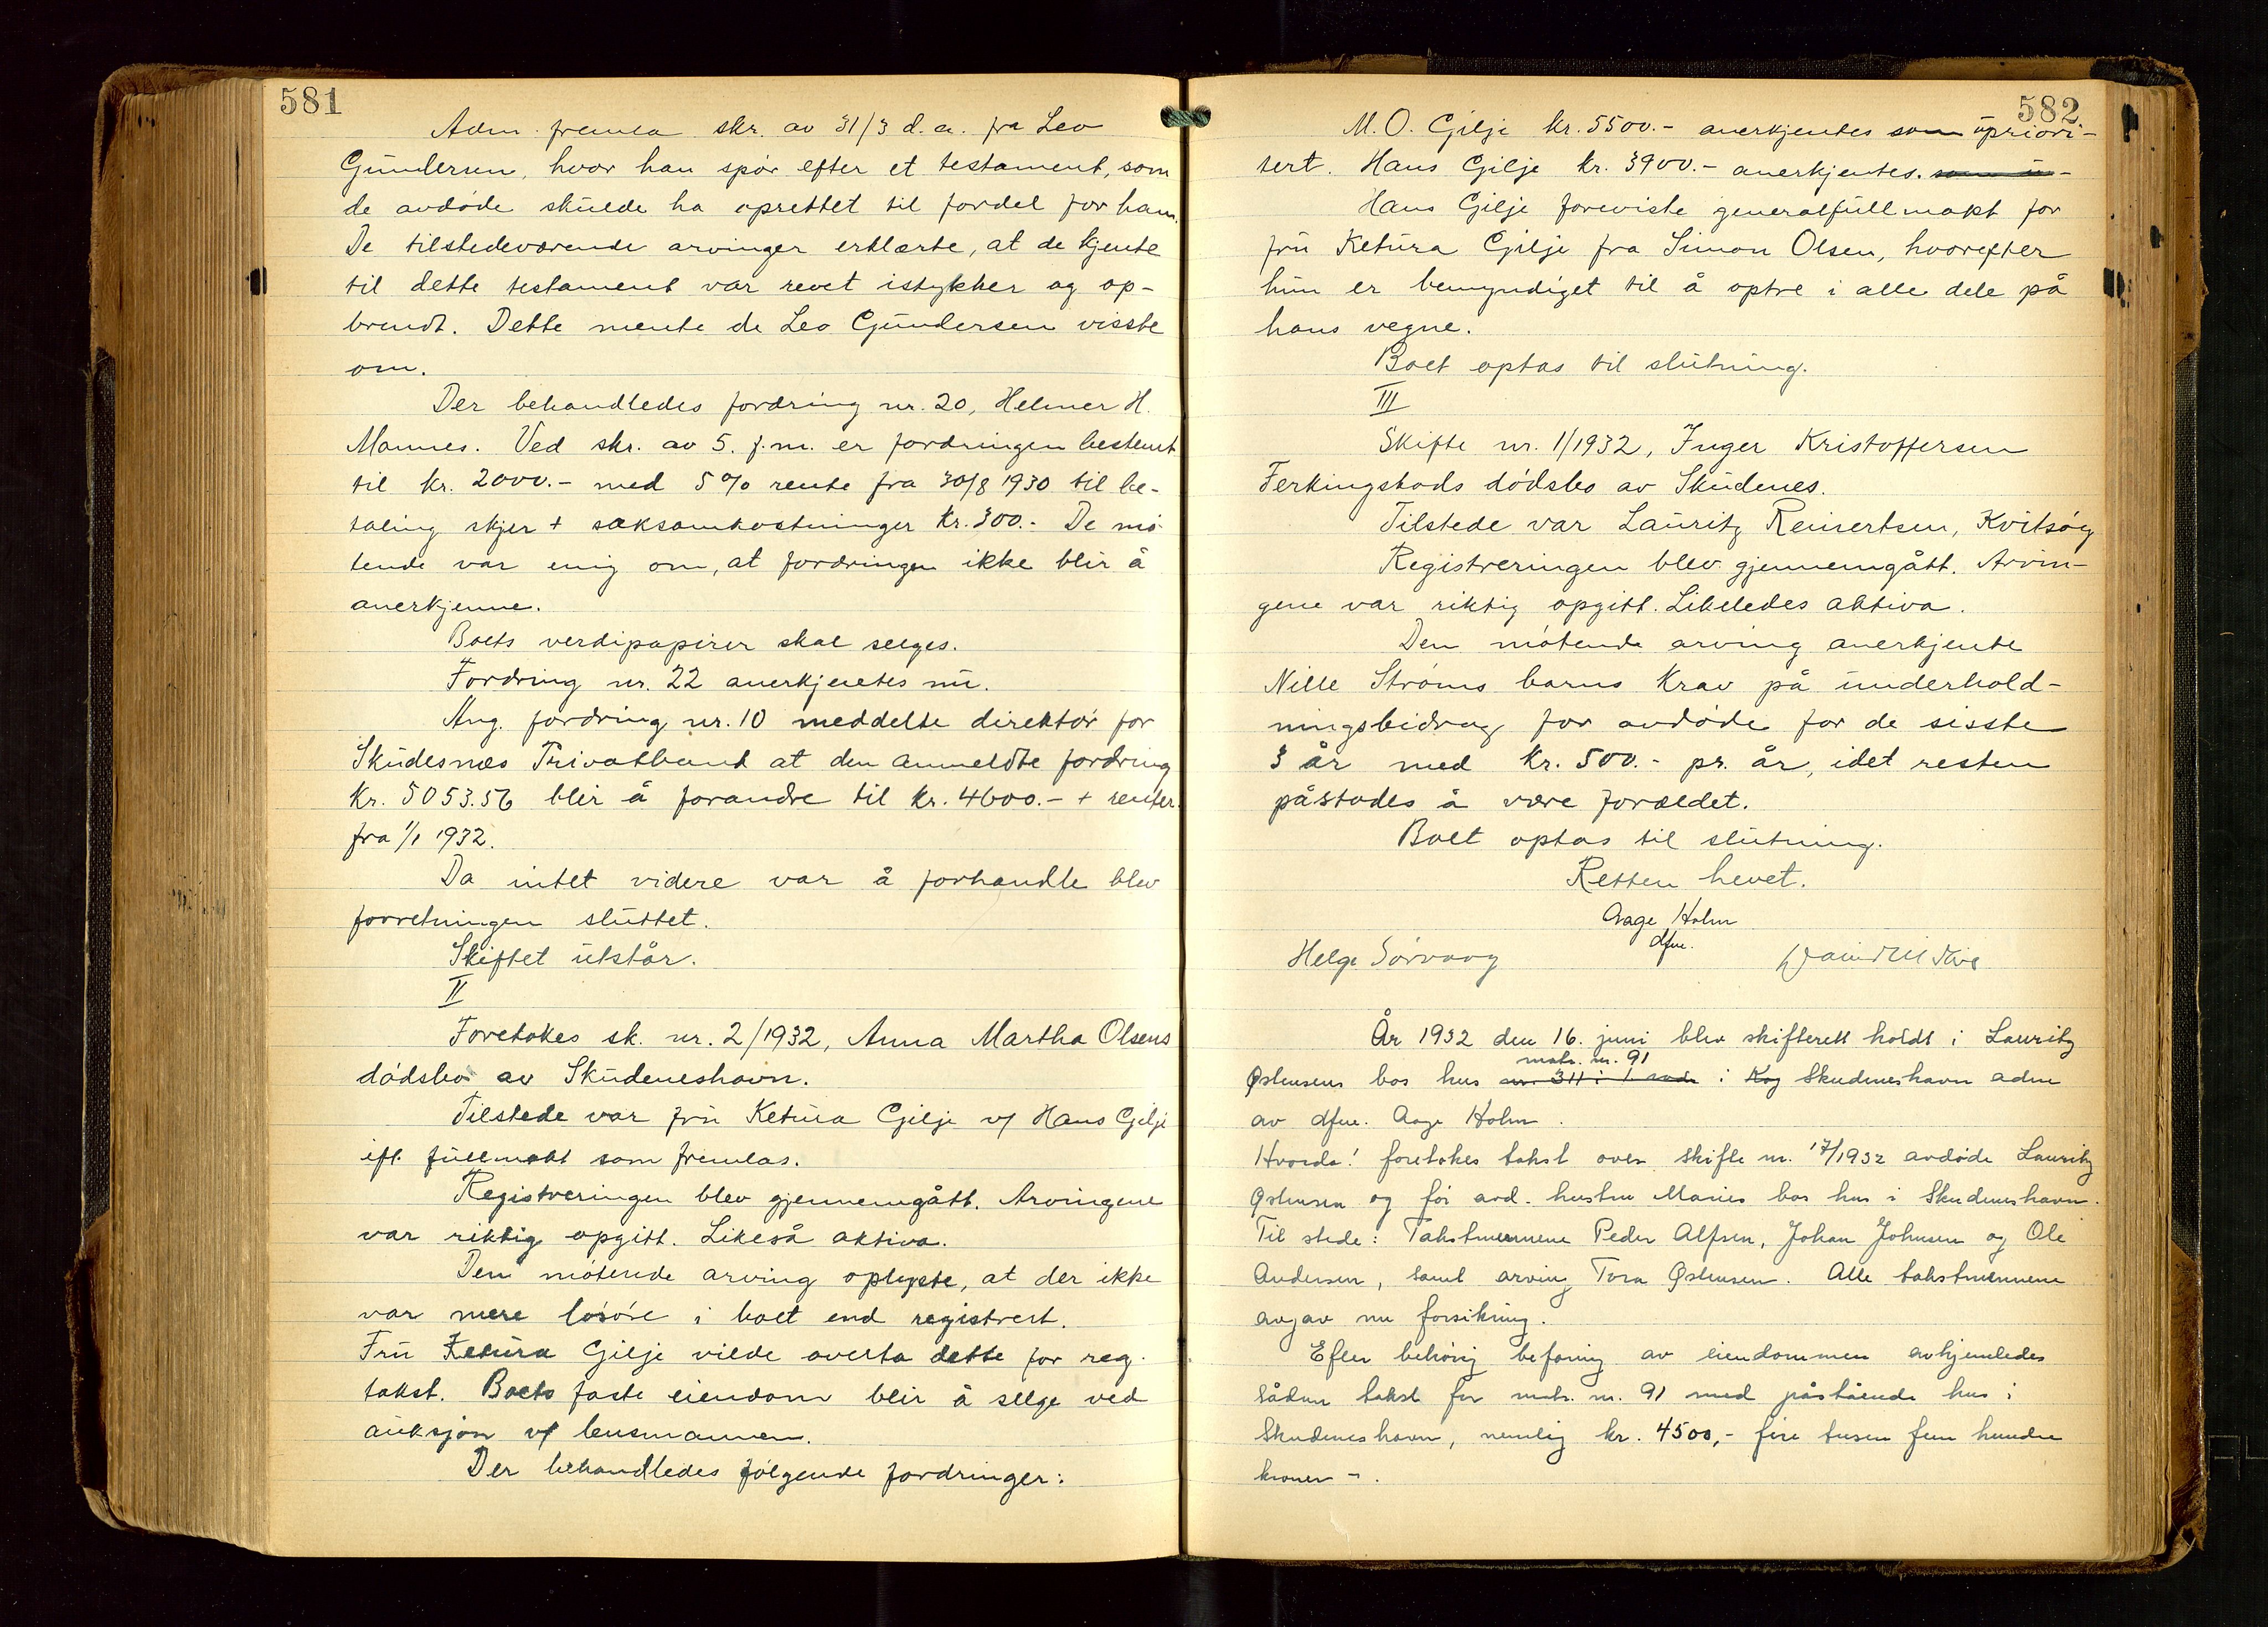 581
Adm. fremla skr. av 31/3 d.a. fra Leo
Gundersen, hvor han spør efter et testament, som
de avdøde skulde ha oprettet til fordel for ham.
De tilstedeværende arvinger erklærte, at de kjente
til dette testament var revet istykker og op-
brendt. Dette mente de Leo Gundersen visste
om.
Der behandledes fordring nr. 20, Helmer H.
Mannes. Ved skr. av 5. f.m. er fordringen bestemt
til kr. 2000.- med 5% rente fra 30/8 1930 til be-
taling skjer + saksomkostninger kr. 300.- De mø-
tende var enig om, at fordringen ikke blir å
anerkjenne.
Boets verdipapirer skal selges.
Fordring nr. 22 anerkjentes nu.
Ang. fordring nr. 10 meddelte direktør for
Skudesnes Privatbank at den anmeldte fordring
kr. 5053.56 blir å forandre til kr. 4600.- + renter
fra 1/1 1932.
Da intet videre var å forhandle blev
forretningen sluttet.
Skiftet utstår.
II
Foretokes sk. nr. 2/1932, Anna Martha Olsens
dødsbo av Skudeneshavn.
Tilstede var fru Ketura Gilje v/ Hans Gilje
ifl. fullmakt som fremlas.
Registreringen blev gjennemgått. Arvingene
var riktig opgitt. Likeså aktiva.
Den møtende arving oplyste, at der ikke
var mere løsøre i boet end registrert.
Fru Ketura Gilje vilde overta dette for reg.
takst. Boets faste eiendom blir å selge ved
auksjon v/ lensmannen.
Der behandledes følgende fordringer:
582
M. O. Gilje kr. 5500.- anerkjentes som upriori-
tert. Hans Gilje kr. 3900.- anerkjentes. som u-
Hans Gilje foreviste generalfullmakt for
fru Ketura Gilje fra Simon Olsen, hvorefter
hun er bemyndiget til å optre i alle dele på
hans vegne.
Boet optas til slutning.
III
Skifte nr. 1/1932, Inger Kristoffersen
Ferkingstads dødsbo av Skudenes.
Tilstede var Lauritz Reinertsen, Kvitsøy
Registreringen blev gjennemgått. Arvin-
gene var riktig opgitt. Likeledes aktiva.
Den møtende arving anerkjente
Nille Strøms barns krav på underhold-
ningsbidrag for avdøde for de sisste
3 år med kr. 500.- pr. år, idet resten
påstodes å være foreldet.
Boet optas til slutning.
Retten hevet.
Aage Holm
dfm.
Helge Sørvaag
År 1932 den 16. juni blev skifterett holdt i Lauritz
matr. nr. 91
Østensens bos hus nr. 311 i 1 rode i Kog Skudeneshavn adm
av dfm. Aage Holm.
Hvorda! foretokes takst over skifte nr. 17/1932 avdøde Lauritz
Østensen og før avd. hustru Maries bos hus i Skudeneshavn.
Til stede: Takstmennene Peder Alfsen, Johan Johnsen og Ole
Andersen, samt arving Tora Østensen. Alle takstmennene
avgav nu forsikring.
Efter behørig befaring av eiendommen avhjemledes
sådan takst for matr. nr. 91 med påstående hus i
Skudeneshavn, nemlig kr. 4500,- fire tusen fem hundre
kroner -.